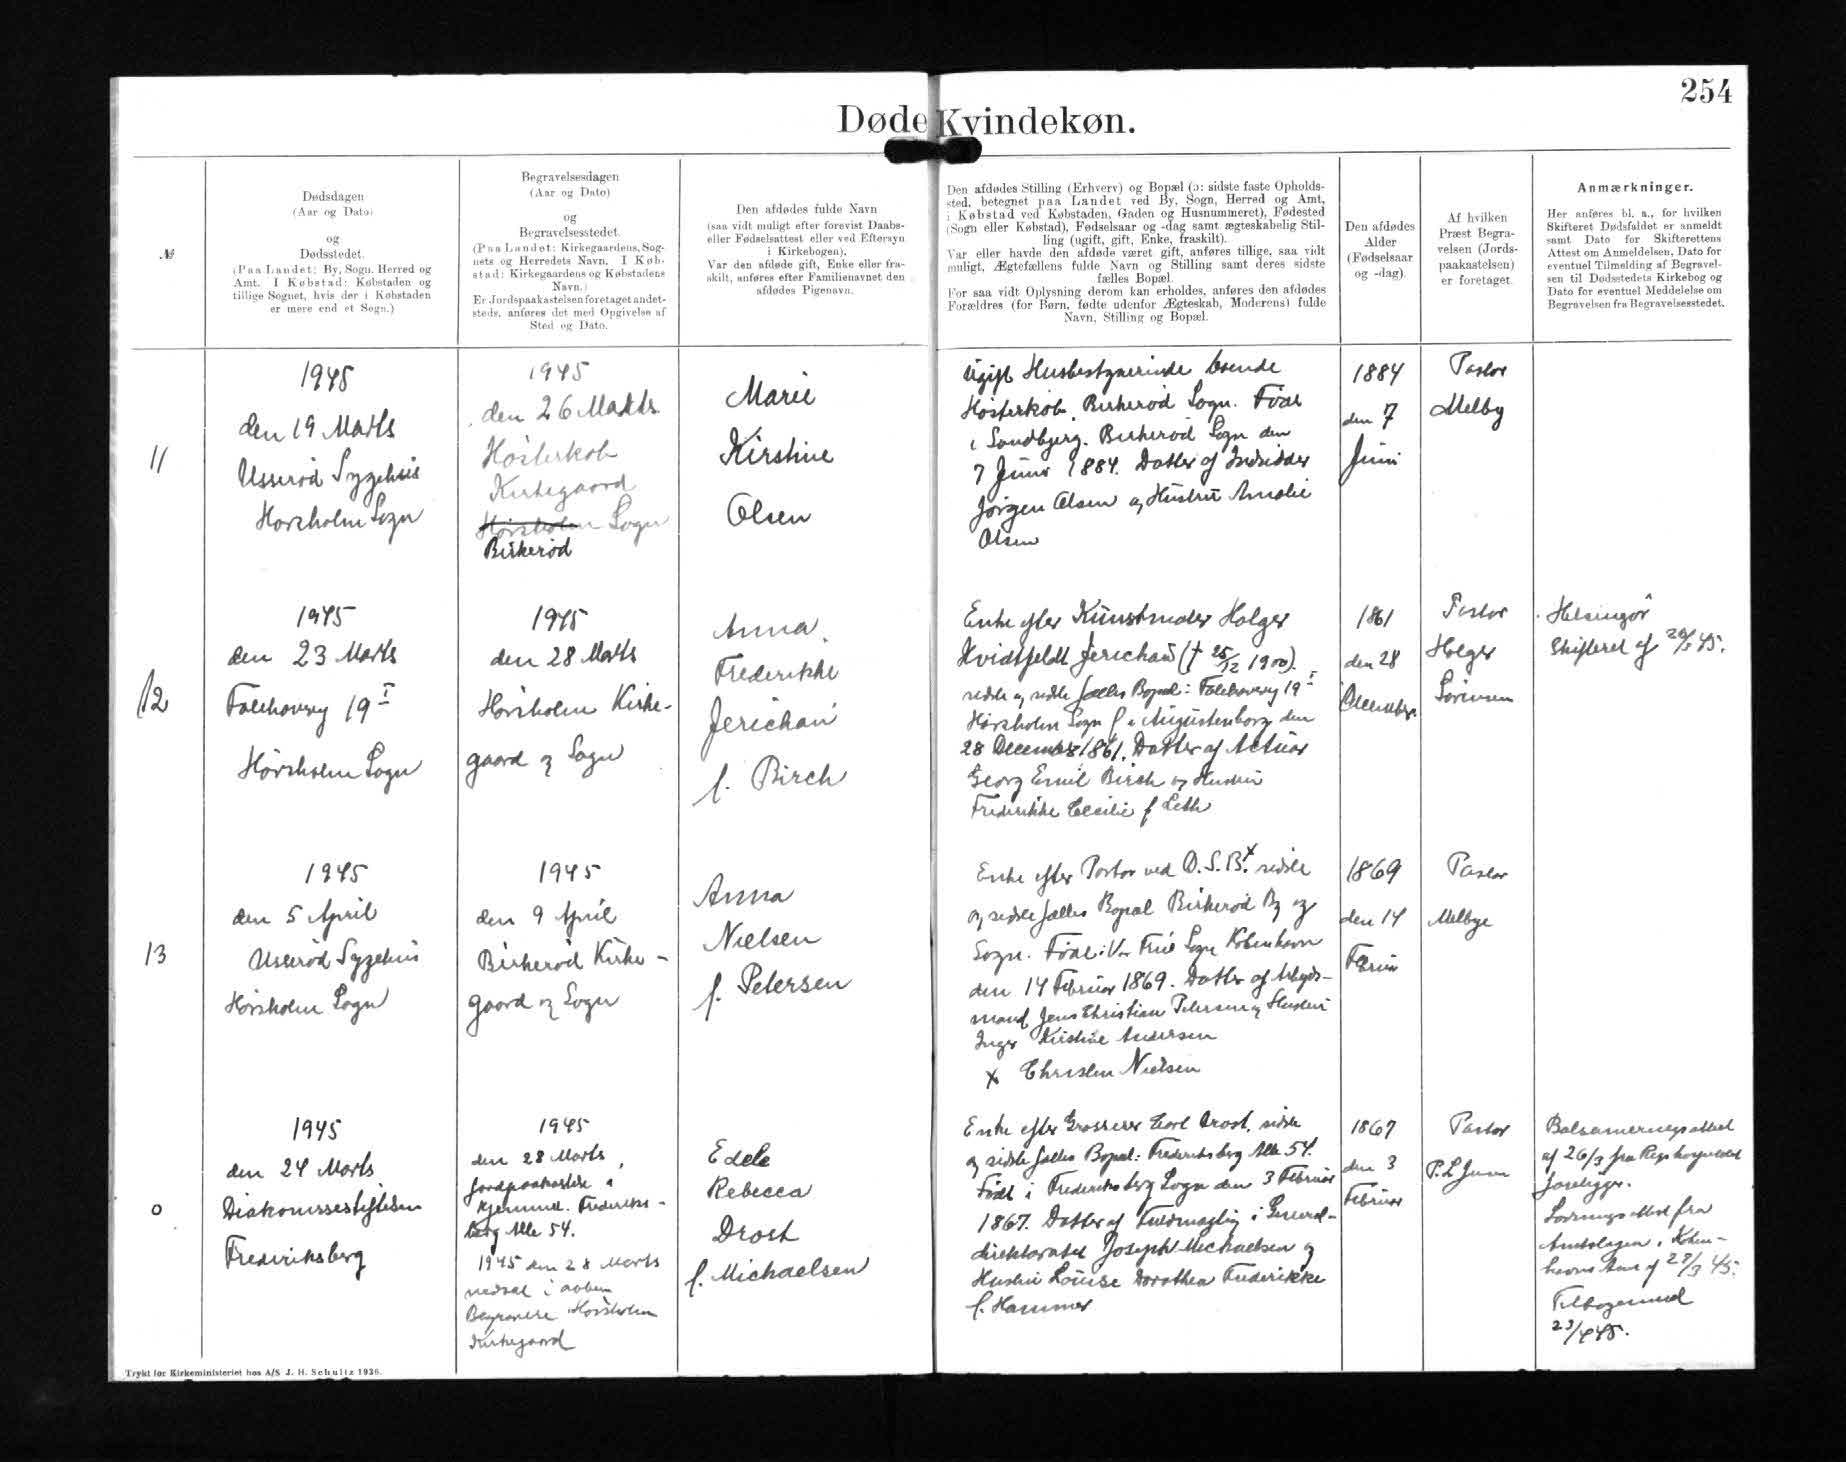 254
Døde Kvindekøn.
№
Dødsdagen
(Aar og Dato)
og
Dødsstedet.
(Paa Landet: By, Sogn, Herred og
Amt. I Købstad: Købstaden og
tillige Sognet, hvis der i Købstaden
er mere end et Sogn.)
Begravelsesdagen
(Aar og Dato)
og
Begravelsesstedet.
(Paa Landet: Kirkegaardens, Sog-
nets og Herredets Navn. I Køb-
stad: Kirkegaardens og Købstadens
Navn.)
Er Jordspaakastelsen foretaget andet-
steds, anføres det med Opgivelse af
Sted og Dato.
Den afdødes fulde Navn
(saa vidt muligt efter forevist Daabs-
eller Fødselsattest eller ved Eftersyn
i Kirkebogen).
Var den afdøde gift, Enke eller fra-
skilt, anføres efter Familienavnet den
afdødes Pigenavn.
Den afdødes Stilling (Erhverv) og Bopæl (ɔ: sidste faste Opholds-
sted, betegnet paa Landet ved By, Sogn, Herred og Amt,
i Købstad ved Købstaden, Gaden og Husnummeret), Fødested
(Sogn eller Købstad), Fødselsaar og -dag samt ægteskabelig Stil-
ling (ugift, gift, Enke, fraskilt).
Var eller havde den afdøde været gift, anføres tillige, saa vidt
muligt, Ægtefællens fulde Navn og Stilling samt deres sidste
fælles Bopæl.
For saa vidt Oplysning derom kan erholdes, anføres den afdødes
Forældres (for Børn, fødte udenfor Ægteskab, Moderens) fulde
Navn, Stilling og Bopæl.
Den afdødes
Alder
(Fødselsaar
og -dag).
Af hvilken
Præst Begra-
velsen (Jords-
paakastelsen)
er foretaget.
Anmærkninger.
Her anføres bl. a., for hvilken
Skifteret Dødsfaldet er anmeldt
samt Dato for Skifterettens
Attest om Anmeldelsen, Dato for
eventuel Tilmelding af Begravel-
sen til Dødsstedets Kirkebog og
Dato for eventuel Meddelelse om
Begravelsen fra Begravelsesstedet.
11
1945
den 19 Marts
Usserød Sygehus
Hørsholm Sogn
1945
den 26 Marts
Høsterkøb
Kirkegaard
Hørsholm Sogn
Birkerød
Marie
Kirstine
Olsen
Ugift Husbestyrerinde boende
Høsterkøb, Birkerød Sogn. Født
i Sandbjerg. Birkerød Sogn den
7 Juni 1884. Datter af Indsidder
Jørgen Olsen og Hustru Amalie
Olsen
1884
den 7
Juni
Pastor
Melby
12
1945
den 23 Marts
Folehavevej 19 I
Hørsholm Sogn
1945
den 28 Marts
Hørsholm Kirke-
gaard og Sogn
Anna
Frederikke
Jerichau
f. Birch
Enke efter Kunstmaler Holger
Hvidtfeldt Jerichau († 25/12 1900).
sidste og sidste fælles Bopæl: Folehavevej 19 I
Hørsholm Sogn f. i Augustenborg den
28 December 1861. Datter af Actuar
Georg Emil Birch og Hustru
Frederikke Cecilie f. Leth
1861
den 28
December
Pastor
Holger
Sørensen
Helsingør
Skifteret af
13
1945
den 5 April
Usserød Sygehus
Hørsholm Sogn
1945
den 9 April
Birkerød Kirke-
gaard og Sogn
Anna
Nielsen
f. Petersen
Enke efter Portør ved D.S.B.x sidste
og sidste fælles Bopæl Birkerød By og
Sogn. Født: Vor Frue Sogn København
den 14 Februar 1869. Datter af Arbejds-
mand Jens Christian Petersen og Hustru
Inger Kirstine Andersen
x Christen Nielsen
1869
den 14
Februar
Pastor
Melbye
0
1945
den 24 Marts
Diakonissestiftelsen
Frederiksberg
1945
den 28 Marts,
Jordpaakastelse i
Hjemmet. Frederiks-
berg Alle 54.
1945 den 28 Marts
nedsat i aaben
Begravelse Hørsholm
Kirkegaard
Edele
Rebecca
Drost
f. Michaelsen
Enke efter Grosserer Carl Drost, sidste
og sidste fælles Bopæl: Frederiksberg Alle 54.
Født i Frederiksberg Sogn den 3 Februar
1867. Datter af Fuldmægtig i General-
direktoratet Joseph Michaelsen og
Hustru Louise Dorothea Frederikke
f. Hammer
1867
den 3
Februar
Pastor
Balsameringsattest
af 26/3 fra Rigshospitalet
foreligger.
fra
Amtslægen i Køben-
havns Amt af 27/3 45.
23/4 45.
Trykt for Kirkeministeriet hos A/S J. H. Schultz 1936.